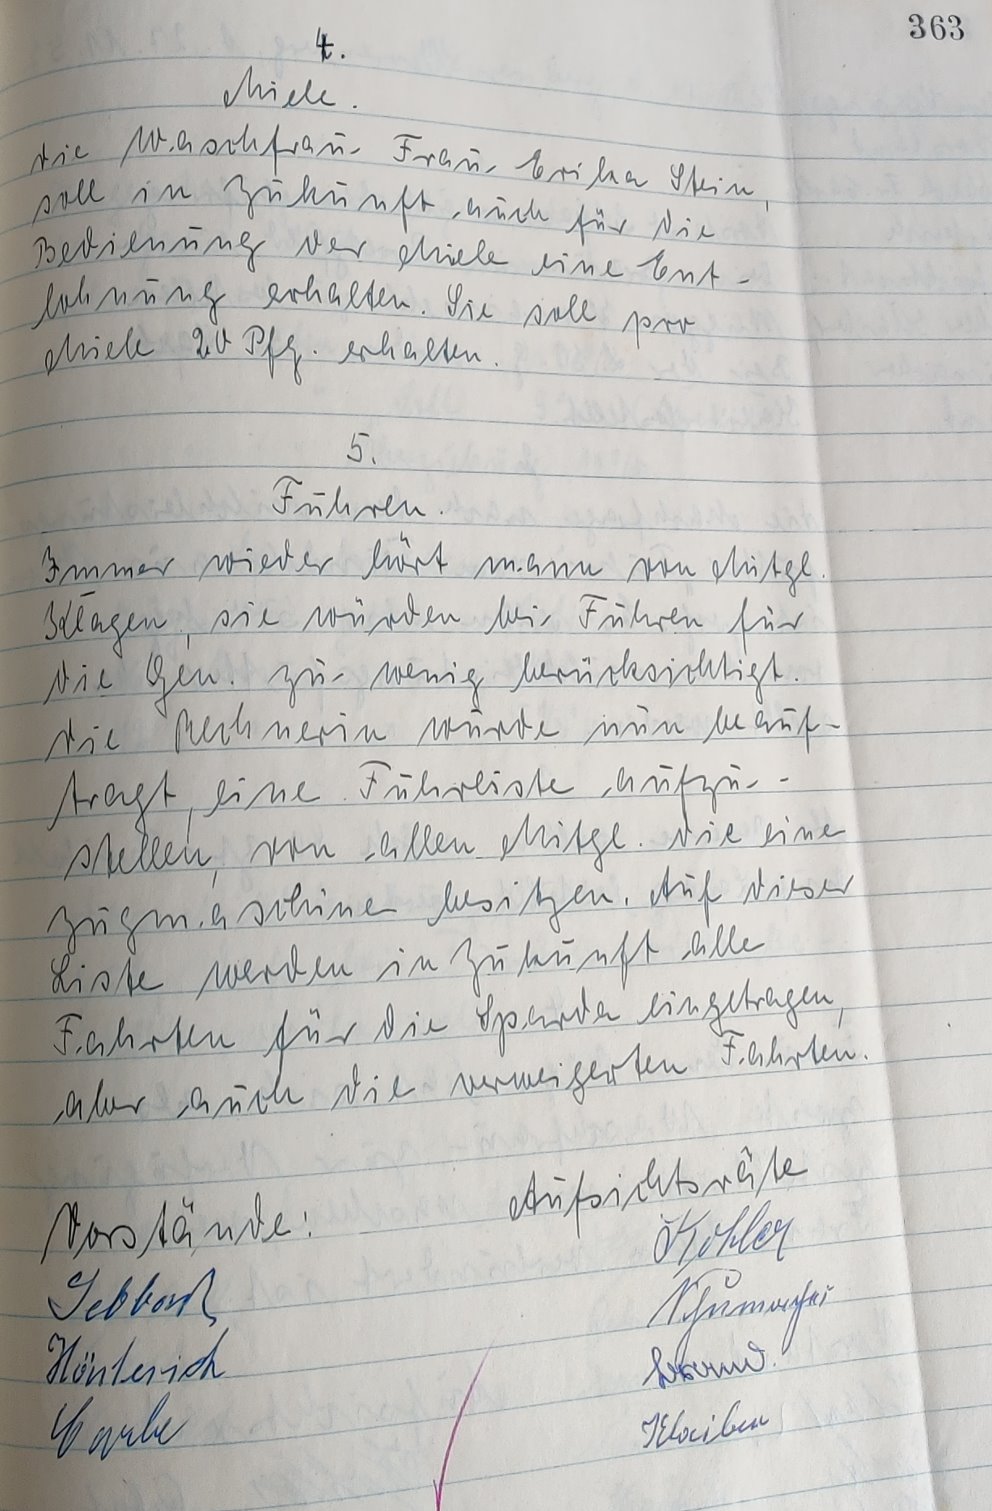 363
4.
Miele.
Die Waschfrau Frau Erika Stein,
soll in Zukunft auch für die
Bedienung der Miele eine Ent-
lohnung erhalten. Sie soll pro
Miele 20 Pfg. erhalten.
5.
Fuhren.
Immer wieder hört mann von Mitgl.
Klagen, sie würden bei Fuhren für
die Gen. zu wenig berücksichtigt.
Die Rechnerin wurde nun beauf-
tragt, eine Fuhrliste aufzu-
stellen, von allen Mitgl. die eine
Zugmaschine besitzen. Auf dieser
Liste werden in Zukunft alle
Fahrten für die Sparda eingetragen,
aber auch die verweigerten Fahrten.
Vorstände: Aufsichtsräte
Kohler
Gebhard
Klaiber